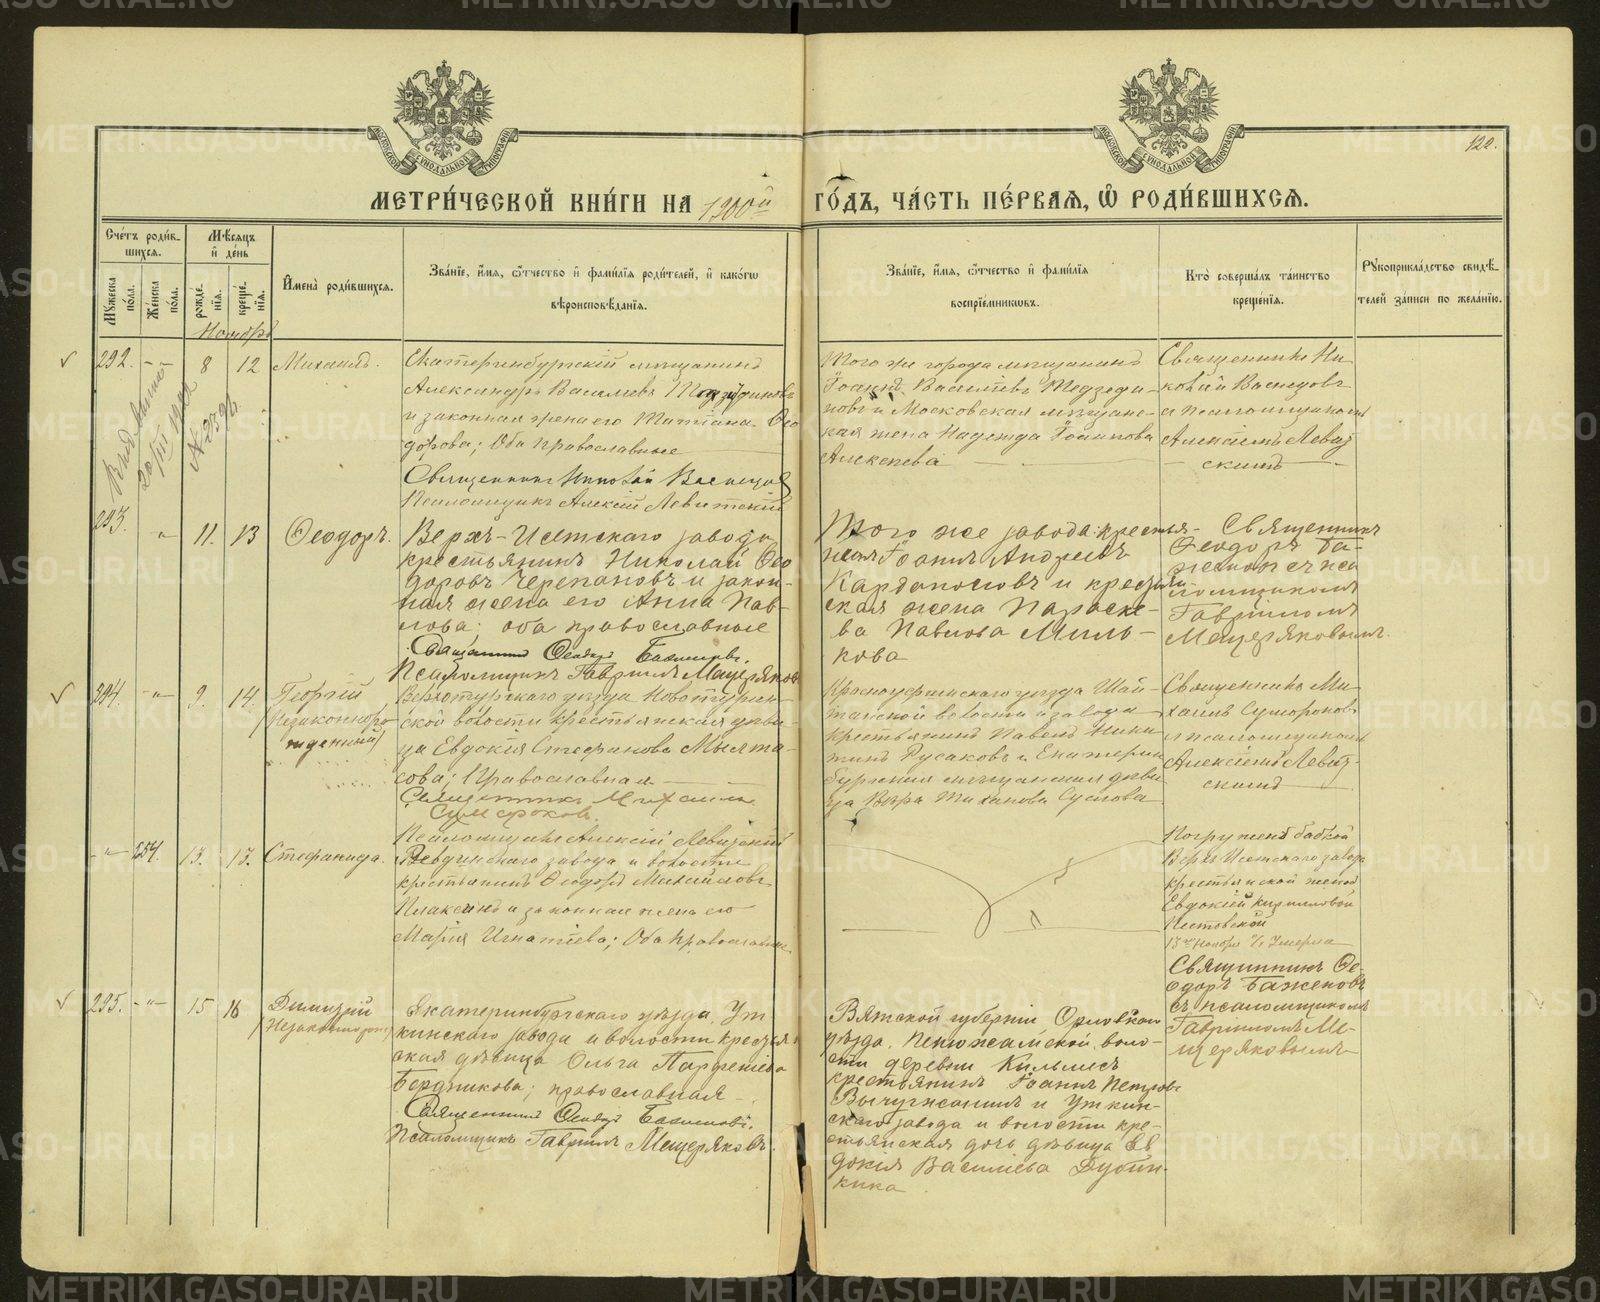 МЕТРИ́ЧЕСКОЙ КНИ́ГИ НА 1900й ГО́ДЪ, ЧА́СТЬ ПЕ́РВАѦ, Ѡ РОДИ́ВШИХСѦ.
122.
Сче́тъ роди́в-
шихсѧ.
Мѣ́сѧцъ
и҆ де́нь
Мꙋжеска по́ла.
Же́нска по́ла.
рожде́-
нїѧ.
креще́-
нїѧ.
И҆мена̀ роди́вшихсѧ.
Зва́нїе, и҆́мѧ, ѻ҆́тчество и҆ фами́лїѧ роди́телей, и҆ како́гѡ
вѣроисповѣ́данїѧ.
Зва́нїе, и҆́мѧ, ѻ҆́тчество и҆ фами́лїѧ
воспрїе́мниковъ.
Кто̀ соверша́лъ та́инство
креще́нїѧ.
Рꙋкоприкла́дство свидѣ́-
телей за́писи по жела́нїю.
Ноябрь
292. - " - 8 12 Михаилъ.
Екатеринбургскій мѣщанинъ
Александръ Васильевъ
и законная жена его Татіана Ѳео
дорова; Оба Православные
Священникъ Николай Васнецов
Псаломщикъ Алексій Левитскій
Того же города мѣщанинъ
Іоаннъ Васильевъ
новъ и Московская мѣщанс-
кая жена Надежда Іоаннова
Алексѣева
Священникъ Ни-
колай Васнецовъ
и псаломщикомъ
Алексѣемъ Левит
скимъ
293. " 11. 13 Ѳеодоръ.
Верхъ-Исетскаго завода
крестьянинъ Николай Ѳео
доровъ Черепановъ и закон-
ная жена его Анна Пав-
лова; оба православные
Священникъ Ѳеодоръ Баженовъ.
Псаломщикъ Гавріилъ Мещеряковъ
Того же завода: крестья-
нинъ Іоаннъ Андреевъ
Кардапольцовъ и крестьян
ская жена Параске-
ва Павлова Миль-
кова
Священникъ
Ѳеодоръ Ба-
женовъ съ пса
ломщикомъ
Гавріиломъ
Мещеряковымъ.
294. - " - 9. 14. Георгій
(Незаконноро
жденный)
Верхотурскаго уѣзда Новотурин-
ской волости крестьянская дѣви-
ца Евдокія Стефанова
сова; Православная
Священникъ Михаилъ
Сумороков.
Псаломщикъ Алексій Левитскій
Красноуфимскаго уѣзда Шай-
танской волости и завода
крестьянинъ Павелъ Ники
тинъ Русаковъ и Екатерин
бургская мѣщанская дѣви
ца Вѣра Тиханова Суслова
Священникъ Ми-
хаилъ Сумороковъ
и псаломщикомъ
Алексѣемъ Левит-
скимъ
- " - 254. 13. 15. Стефанида.
Ревдинскаго завода и волости
крестьянинъ Ѳеодоръ Михайловъ
Плаксинъ и законная жена его
Марія Игнатіева; Оба Православные
Погружена бабкой
Верхъ Исетскаго завода
крестьянской женой
Евдокіей Кирилловой
Пестовской
13го Ноября Умерла
Священникъ Ѳе-
одоръ Баженовъ
съ псаломщикомъ
Гавріиломъ Ме-
щеряковымъ
295. - " - 15 16 Димитрій
(Незаконнорож)
Екатеринбургскаго уѣзда Ут
кинскаго завода и волости крестьян
ская дѣвица Ольга Парфеніева
Бердникова; православная
Священникъ Ѳеодоръ Баженовъ.
Псаломщикъ Гавріилъ Мещеряковъ.
Вятской губерніи, Орловскаго
уѣзда, воло-
сти деревни
крестьянинъ Іоаннъ Петровъ
Вычугжанинъ и Уткин-
скаго завода и волости кре-
стьянская дочь дѣвица Ев
докія Васильева Дубин-
кина